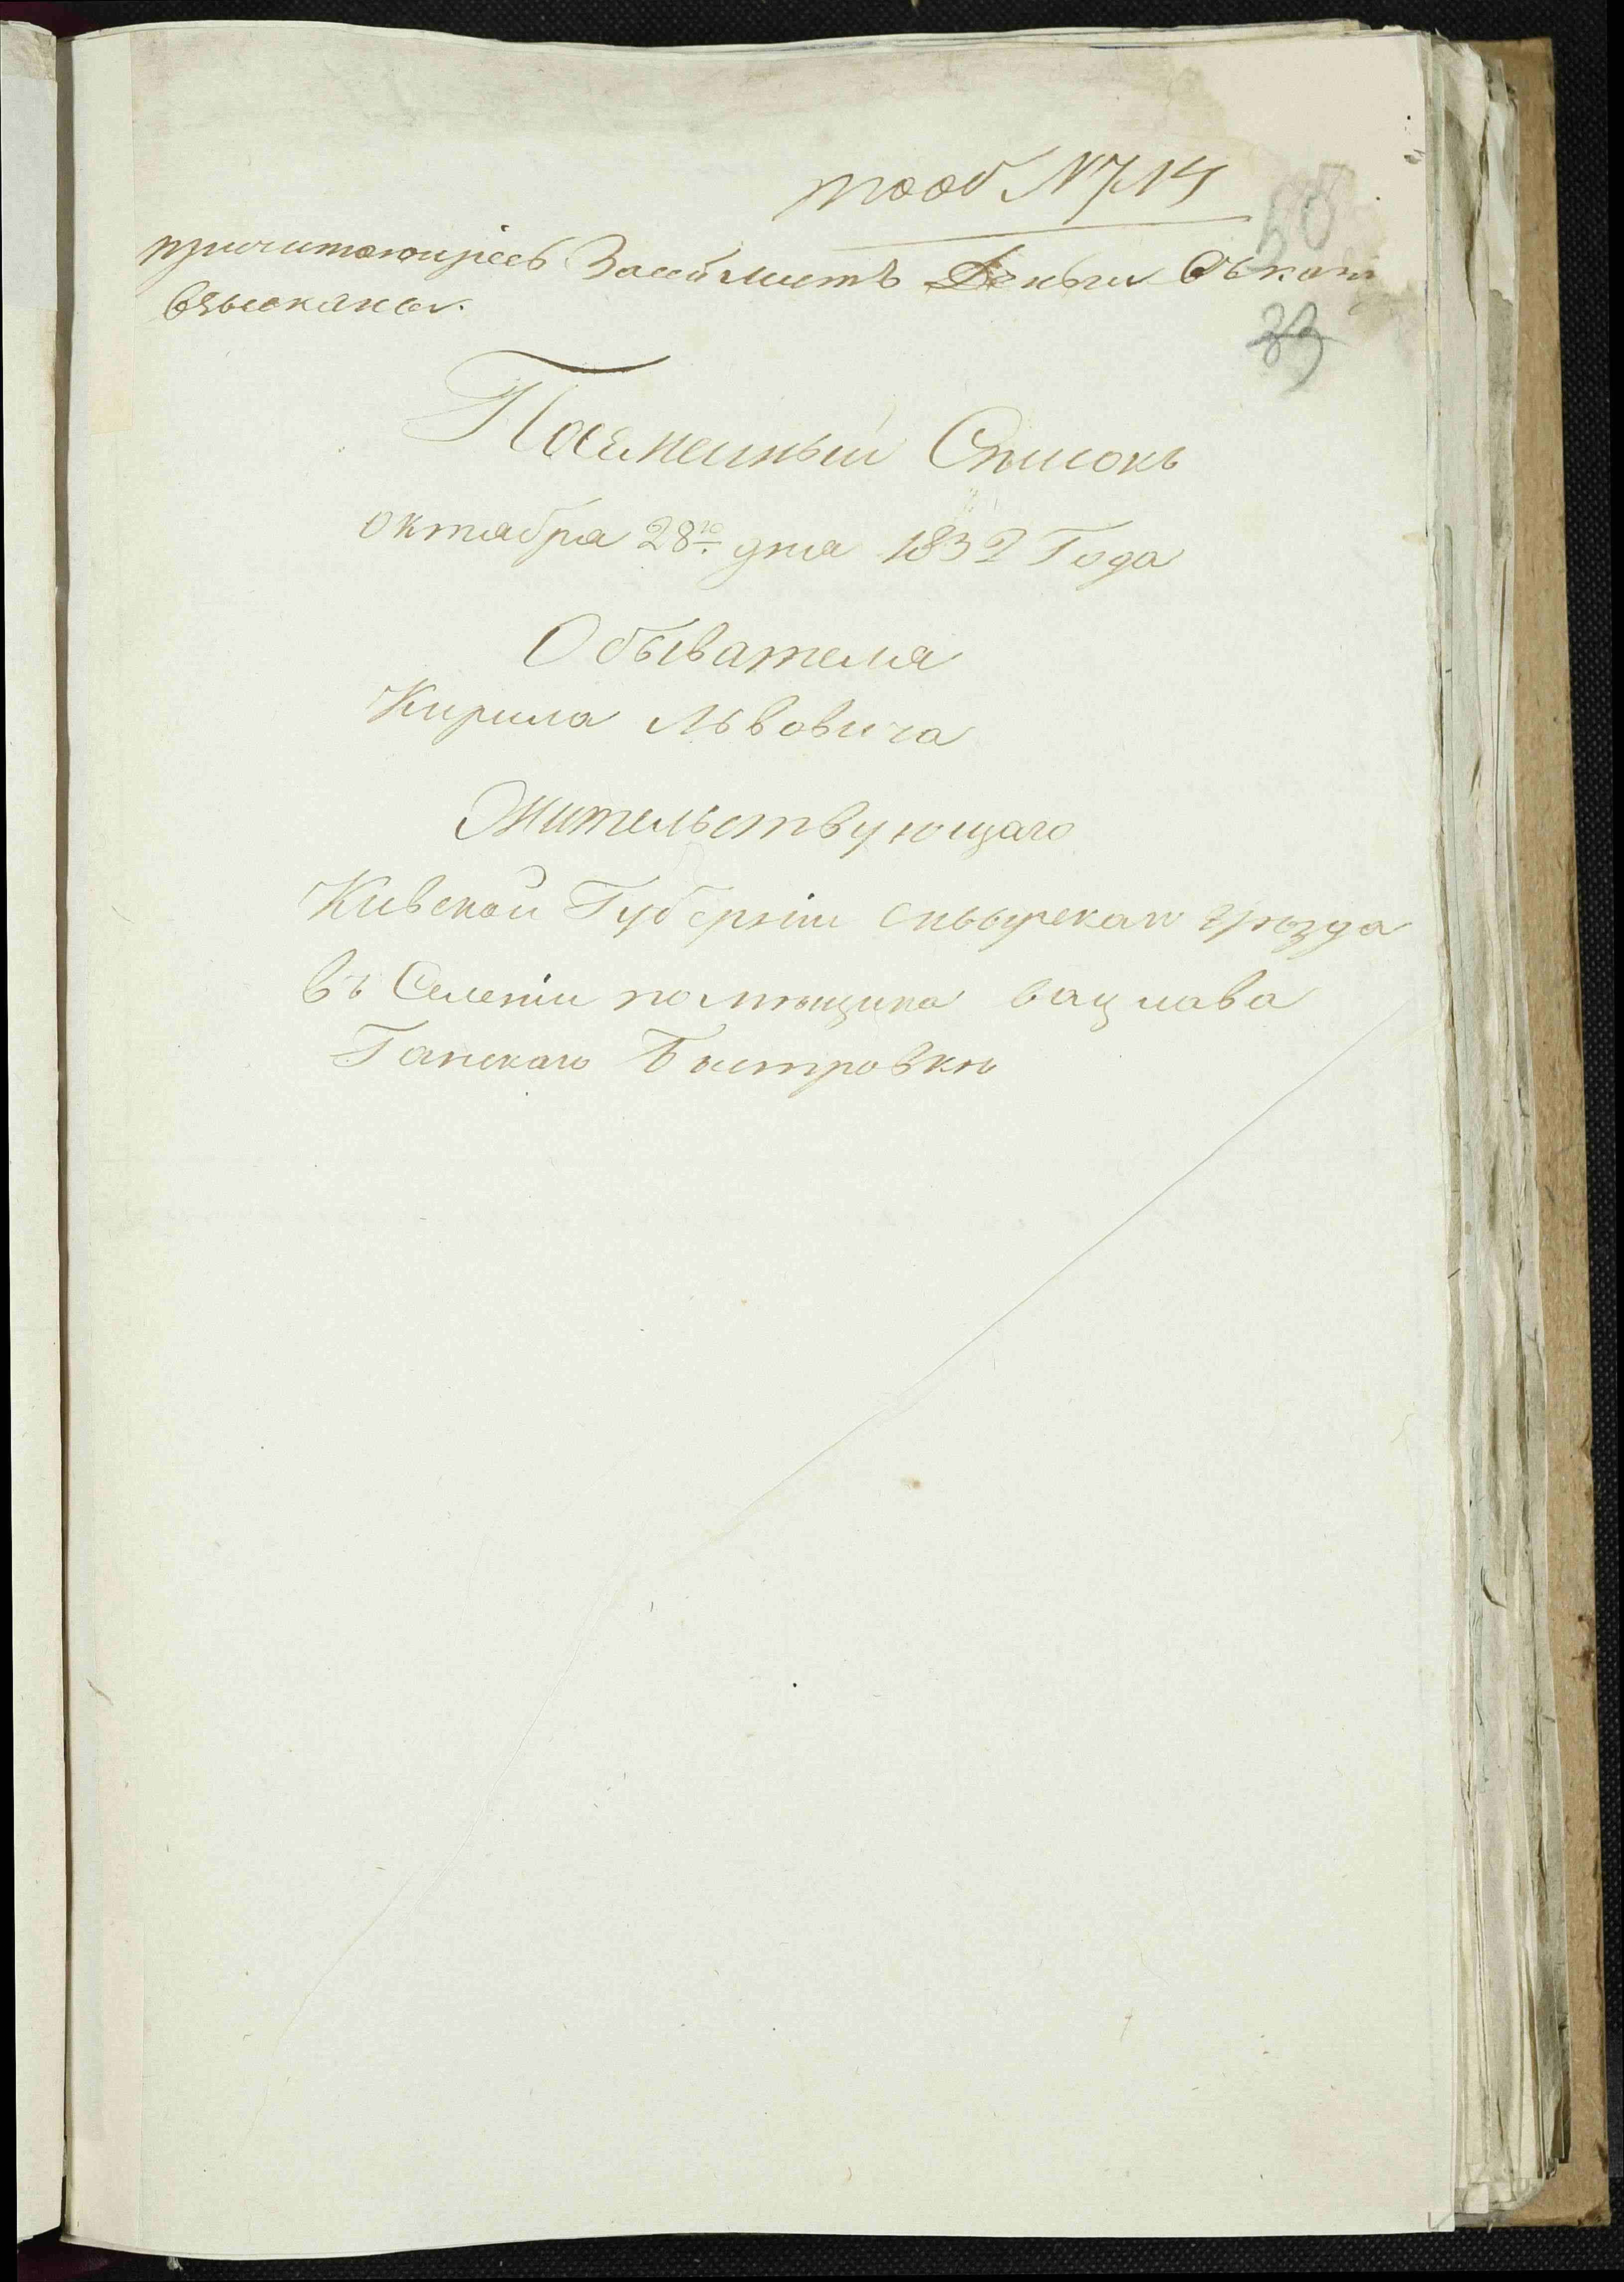 № 714
причитающіесь За сей листъ Деньги
взысканы.
33
Посемейный Списокъ
октября 28го дня 1832 Года
Обывателя
Кирила Львовича
Жительствующаго
Кивской Губерніи сквырскаго уѣзда
въ Селеніи помѣщика вацлава
Ганскаго Быстровкѣ